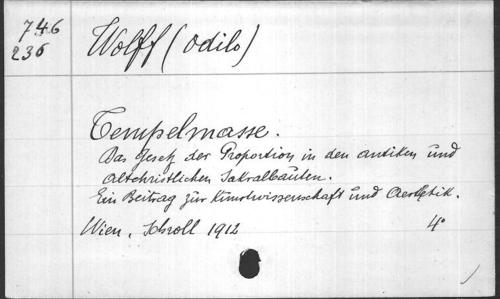 746
236
Wolff (Odilo)
Tempelmasse.
Das Gesetz der Proportion in den antiken und
altchristlichen Sakralbauten.
Ein Beitrag zur Kunstwissenschaft und Aesthetik.
Wien, Schroll 1912 4°